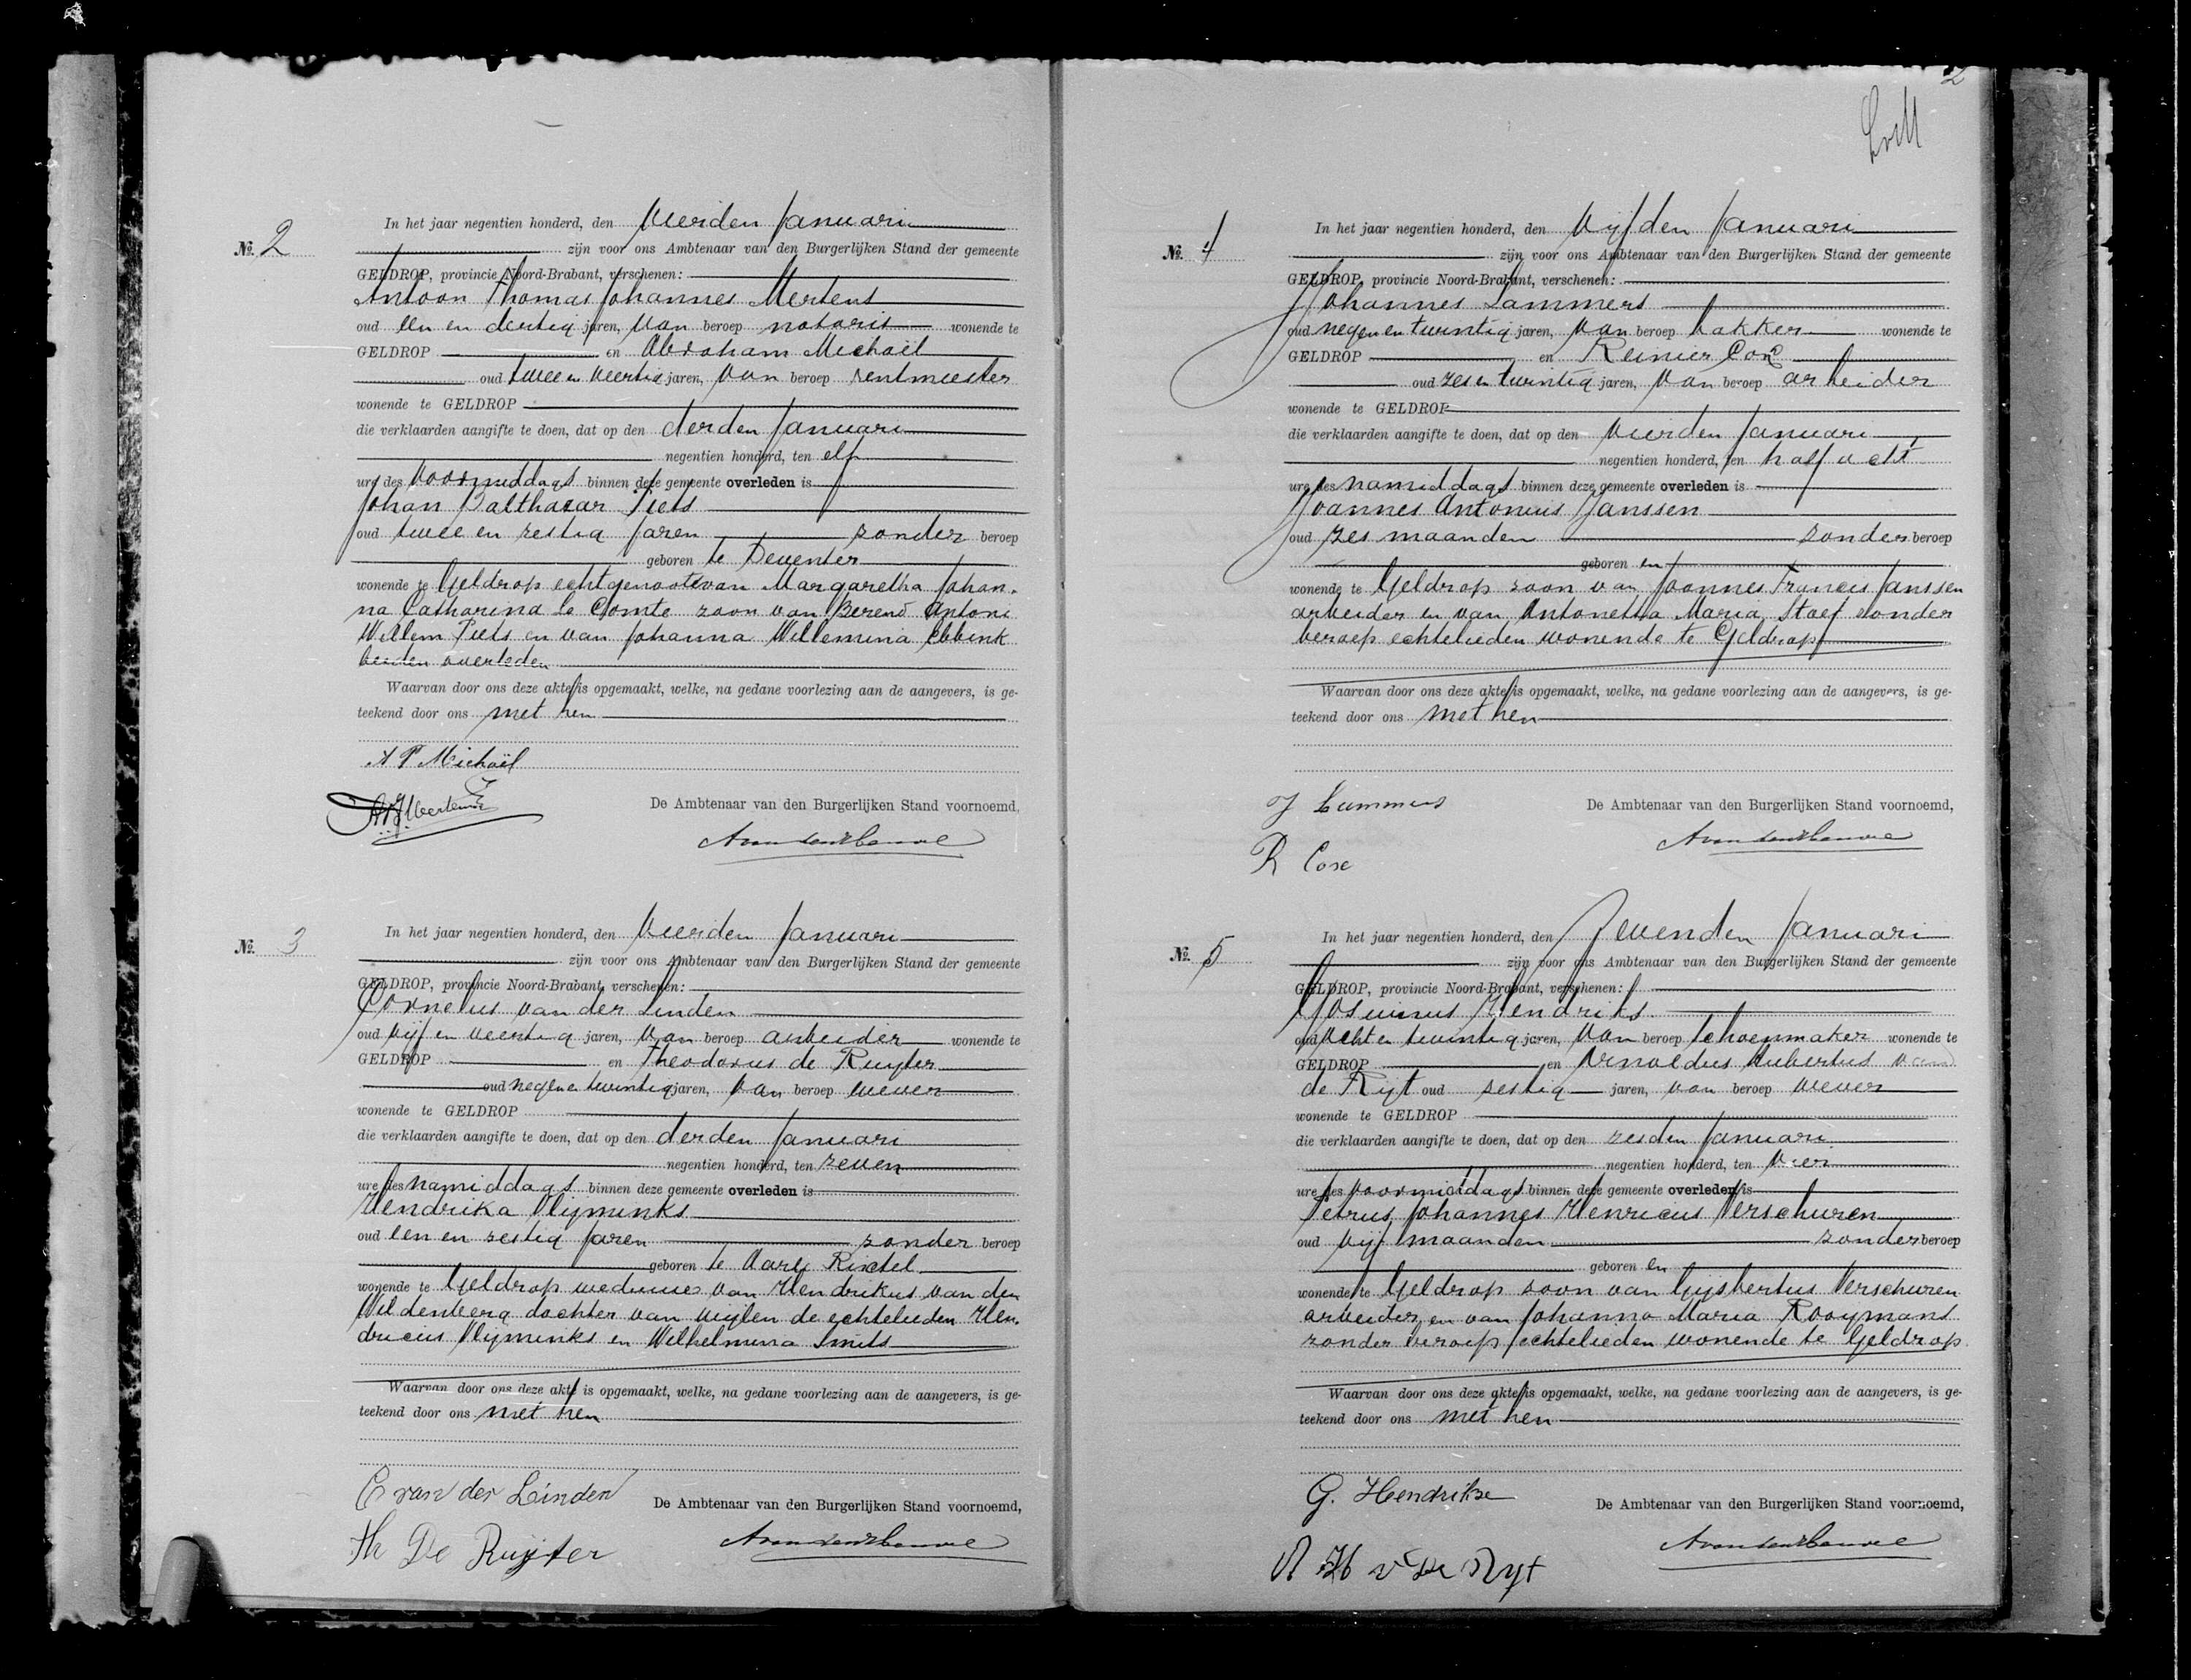 № 2
In het jaar negentien honderd, den Vierden Januari
zijn voor ons Ambtenaar van den Burgerlijken Stand der gemeente
GELDROP, provincie Noord-Brabant, verschenen:
Antoon Thomas Johannes Mertens
oud een en dertig jaren, van beroep notaris wonende te
GELDROP en Abraham Michaël
oud twee en veertig jaren, van beroep rentmeester
wonende te GELDROP
die verklaarden aangifte te doen, dat op den derden Januari
negentien honderd, ten elf
ure des voormiddags binnen deze gemeente overleden is
Johan Balthazar Piets
oud twee en zestig jaren zonder beroep
geboren te Deventer
wonende te Geldrop echtgenoot van Margaretha Johan-
na Catharina Le Comte zoon van Berend Antoni
Willem Piets en van Johanna Willemina Ebbink
beiden overleden
Waarvan door ons deze akte is opgemaakt, welke, na gedane voorlezing aan de aangevers, is ge-
teekend door ons met hen
A P Michaël
De Ambtenaar van den Burgerlijken Stand voornoemd,
№ 3
In het jaar negentien honderd, den Vierden Januari
zijn voor ons Ambtenaar van den Burgerlijken Stand der gemeente
GELDROP, provincie Noord-Brabant, verschenen:
Cornelus van der Linden
oud vijf en veertig jaren, van beroep arbeider wonende te
GELDROP en Theodorus de Ruyter
oud negen en twintig jaren, van beroep wever
wonende te GELDROP
die verklaarden aangifte te doen, dat op den derden Januari
negentien honderd, ten zeven
ure des namiddags binnen deze gemeente overleden is
Hendrika Vlijminks
oud een en zestig jaren zonder beroep
geboren te Aarle Rixtel
wonende te Geldrop weduwe van Hendrikus van den
Wildenberg dochter van wijlen de echtelieden Hen-
dricus Vlijminks en Wilhelmina Smits
Waarvan door ons deze akte is opgemaakt, welke, na gedane voorlezing aan de aangevers, is ge-
teekend door ons met hen
C van der Linden
De Ambtenaar van den Burgerlijken Stand voornoemd,
Th De Ruijter
2
№ 4
In het jaar negentien honderd, den Vijfden Januari
zijn voor ons Ambtenaar van den Burgerlijken Stand der gemeente
GELDROP, provincie Noord-Brabant, verschenen:
Johannes Lammers
oud negen en twintig jaren, van beroep bakker wonende te
GELDROP en Reinier Cox
oud zes en twintig jaren, van beroep arbeider
wonende te GELDROP
die verklaarden aangifte te doen, dat op den Vierden Januari
negentien honderd, ten half acht
ure des namiddags binnen deze gemeente overleden is
Joannes Antonius Janssen
oud zes maanden zonder beroep
geboren en
wonende te Geldrop zoon van Joannes Francis Janssen
arbeider en van Antonetta Maria Stoef zonder
beroep echtelieden wonende te Geldrop
Waarvan door ons deze akte is opgemaakt, welke, na gedane voorlezing aan de aangevers, is ge-
teekend door ons met hen
J Lammers
De Ambtenaar van den Burgerlijken Stand voornoemd,
R Cox
№ 5
In het jaar negentien honderd, den Zevenden Januari
zijn voor ons Ambtenaar van den Burgerlijken Stand der gemeente
GELDROP, provincie Noord-Brabant, verschenen:
Gosuinus Hendriks
oud acht en twintig jaren, van beroep schoenmaker wonende te
GELDROP en Arnoldus Hubertus van
de Rijt oud zestig jaren, van beroep wever
wonende te GELDROP
die verklaarden aangifte te doen, dat op den zesden Januari
negentien honderd, ten vier
ure des voormiddags binnen deze gemeente overleden is
Petrus Johannes Henricus Verschuren
oud vijf maanden zonder beroep
geboren en
wonende te Geldrop zoon van Gijsbertus Verschuren
arbeider, en van Johanna Maria Rooymans
zonder beroep echtelieden wonende te Geldrop
Waarvan door ons deze akte is opgemaakt, welke, na gedane voorlezing aan de aangevers, is ge-
teekend door ons met hen
G. Hendrikse
De Ambtenaar van den Burgerlijken Stand voornoemd,
A H v De Ryt